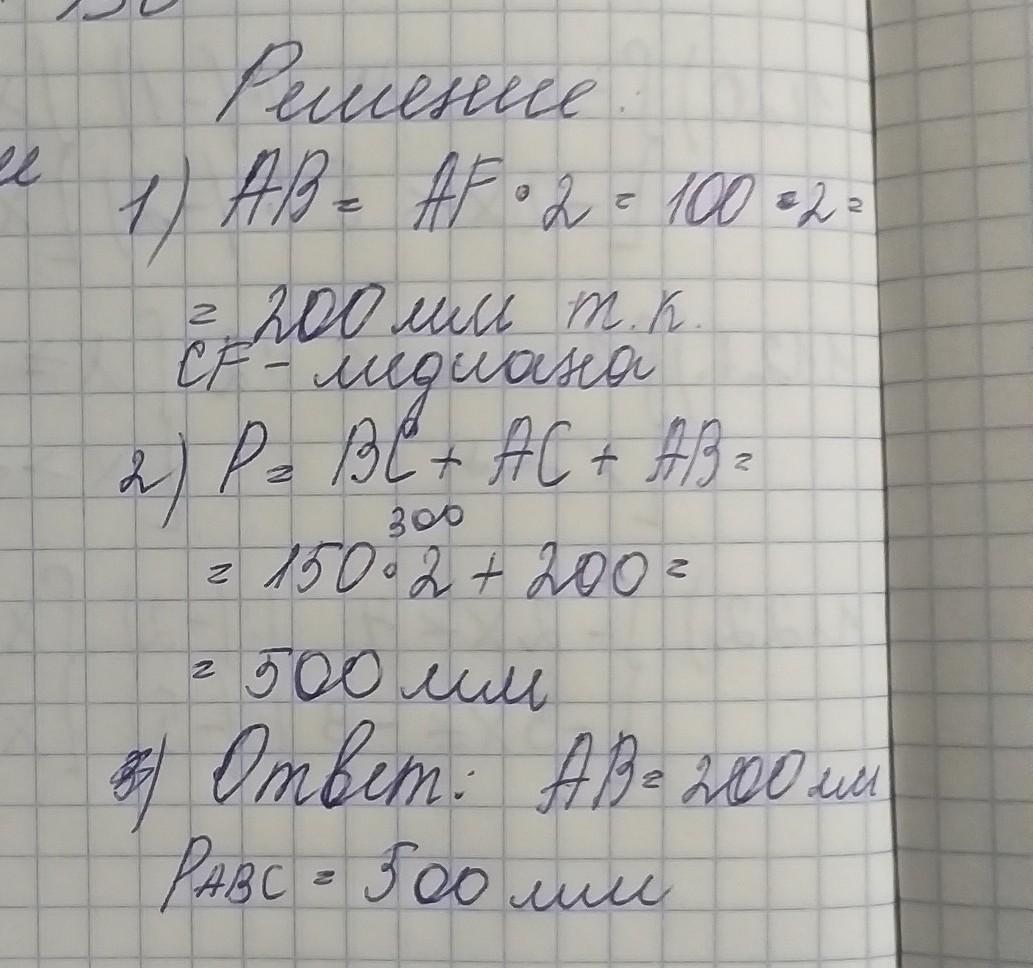 150
Решение.
1) AB = AF • 2 = 100 • 2 =
= 200 мм т.к.
CF - медиана
2) P = BC + AC + AB =
300
= 150 • 2 + 200 =
= 500 мм
3) Ответ: AB = 200 мм
PABC = 500 мм